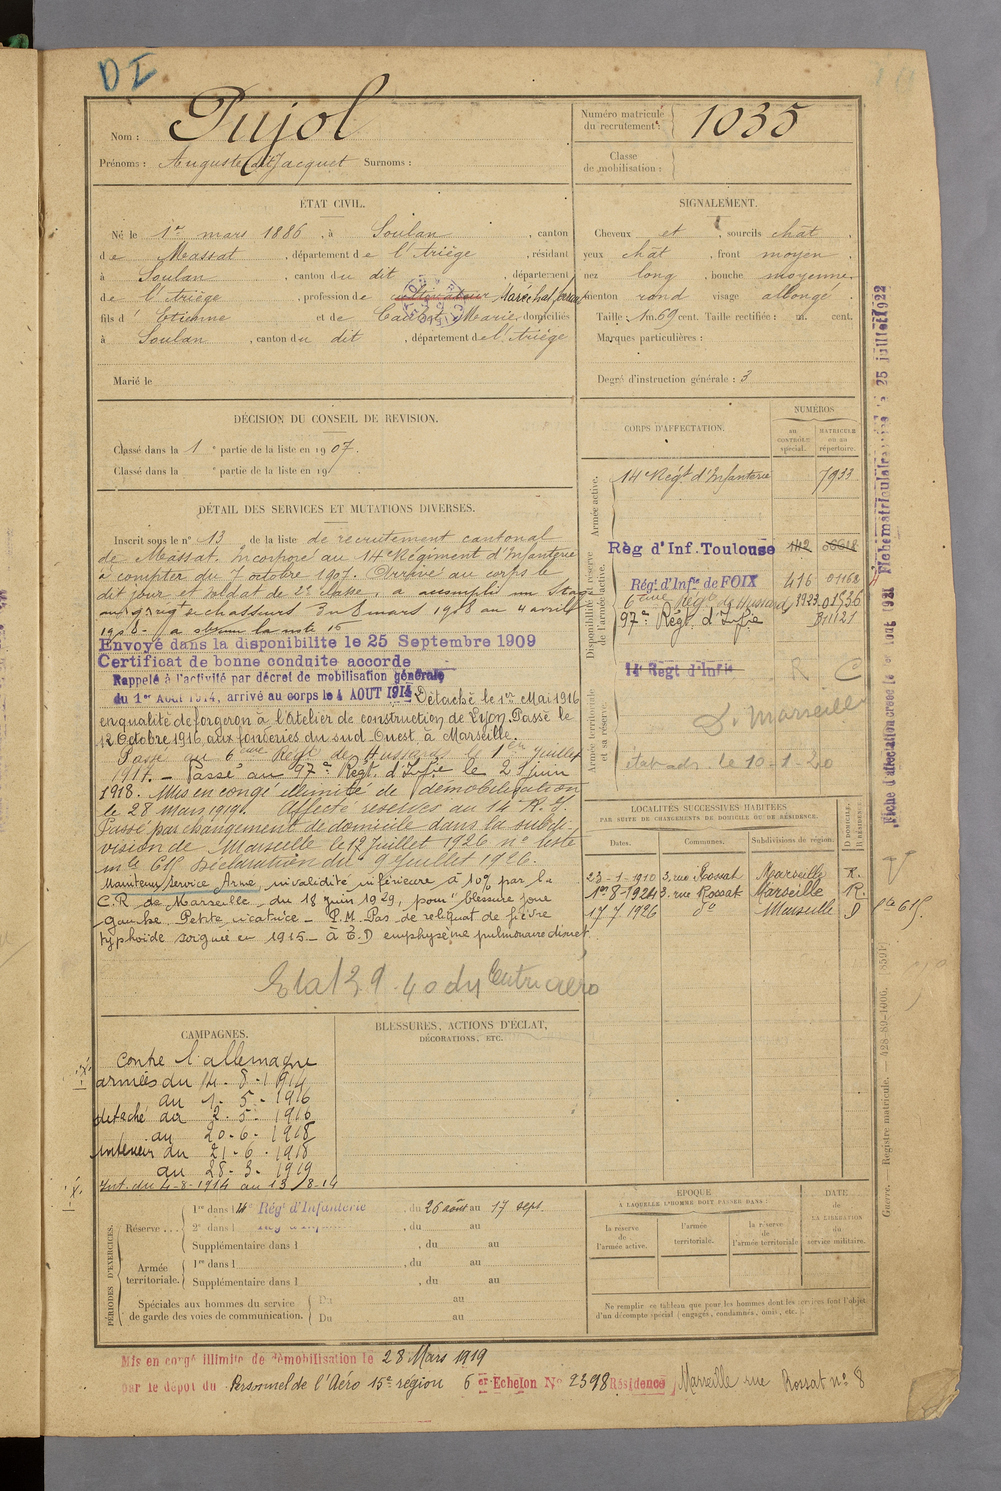 DI
Nom : Pujol
Prénoms : Auguste (dit) Jacquet Surnoms :
Numéro matricule du recrutement : 1035
Classe de mobilisation :
ÉTAT CIVIL.
Né le 1er mars 1886, à Soulan, canton
de Massat, département de l'Ariège, résidant
à Soulan, canton du dit, département
de l'Ariège, profession de cultivateur Maréchal ferrant
fils d' Etienne et de Marie, domiciliés
à Soulan, canton du dit, département de l'Ariège
Marié le
SIGNALEMENT.
Cheveux et sourcils chât.
yeux chât, front moyen,
nez long, bouche moyenne,
menton rond visage allongé.
Taille : 1m. 69 cent. Taille rectifiée : m. cent.
Marques particulières :
Degré d'instruction générale : 3
DÉCISION DU CONSEIL DE REVISION.
Classé dans la 1e partie de la liste en 1907.
Classé dans la e partie de la liste en 19
DÉTAIL DES SERVICES ET MUTATIONS DIVERSES.
Inscrit sous le n° 13 de la liste de recrutement cantonal
de Massat. Incorporé au 14e Régiment d'Infanterie
à compter du 7 octobre 1907. Arrivé au corps le
dit jour et soldat de 2e classe, a accompli un stage
chasseurs du 8 mars 1908 au 4 avril
1908 - a obtenu la note 15
Envoyé dans la disponibilite le 25 Septembre 1909
Certificat de bonne conduite accorde
Rappelé à l'activité par décret de mobilisation générale
du 1er Août 1914, arrivé au corps le 4 AOUT 1914 Détaché le 1er Mai 1916
en qualité de forgeron à l'Atelier de construction de Lyon. Passé le
12 Octobre 1916 aux fonderies du sud-Ouest, à Marseille.
Passé au 6eme Régt de Hussards le 1er Juillet
1917. - Passé au 97e Régt d'Infie le 21 juin
1918. Mis en congé illimité de démobilisation
le 28 mars 1919. Affecté réserves au 14e R.I.
Passé par changement de domicile dans la subdi-
vision de Marseille le 12 juillet 1926 n° liste
mle 615 Déclaration du 9 juillet 1926.
Maintenu Service Armé, invalidité inférieure à 10% par la
C.R de Marseille du 18 juin 1929, pour "blessure joue
gauche. Petite cicatrice - P.M. Pas de reliquat de fièvre
typhoïde soignée en 1915 - à E.D emphysème pulmonaire discret
CORPS D'AFFECTATION.
NUMÉROS
au CONTRÔLE spécial.
MATRICULE ou au répertoire.
Armée active.
14e Régt d'Infanterie 7933
Disponibilité et réserve de l'armée active.
Règ d'Inf. Toulouse 142
Régt d'Infie de FOIX 416 01162
6eme Régt de Hussard 1923 01536
97e Régt d'Infie 31127
Armée territoriale et sa réserve.
14e Regt d'Infie R C
D. Marseille
état adr. le 10-1-40
LOCALITÉS SUCCESSIVES HABITÉES
PAR SUITE DE CHANGEMENTS DE DOMICILE OU DE RÉSIDENCE.
D DOMICILE. R RÉSIDENCE.
Dates. Communes. Subdivisions de région.
23-1-1910 3, rue Rossat Marseille R.
1er 8-1924 3, rue Rossat Marseille R.
17 7 1926 do Marseille D
lte 615.
CAMPAGNES.
contre l'allemagne
armées du 14-8-1914
au 1-5-1916
détaché du 2-5-1916
au 20-6-1918
interieur du 21-6-1918
au 28-3-1919
Int. du 4-8-1914 au 13-8-14
BLESSURES, ACTIONS D'ÉCLAT,
DÉCORATIONS, ETC.
PÉRIODES D'EXERCICES.
Réserve...
1re dans l 14e Régt d'Infanterie, du 26 août au 17 sept.
2e dans l, du au
Supplémentaire dans l, du au
Armée territoriale.
1re dans l, du au
Supplémentaire dans l, du au
Spéciales aux hommes du service
de garde des voies de communication.
Du au
Du au
EPOQUE
A LAQUELLE L'HOMME DOIT PASSER DANS :
la réserve de l'armée active.
l'armée territoriale.
la réserve de l'armée territoriale
DATE de LA LIBÉRATION du service militaire.
Ne remplir ce tableau que pour les hommes dont les services font l'objet
d'un décompte spécial (engagés, condamnés, omis, etc.).
Mis en congé illimité de démobilisation le 28 Mars 1919
par le dépôt du Personnel de l'Aéro 15e région 6er Echelon N° 2398 Résidence Marseille rue Rossat n° 8
Guerre. — Registre matricule. — 428-89-1906.